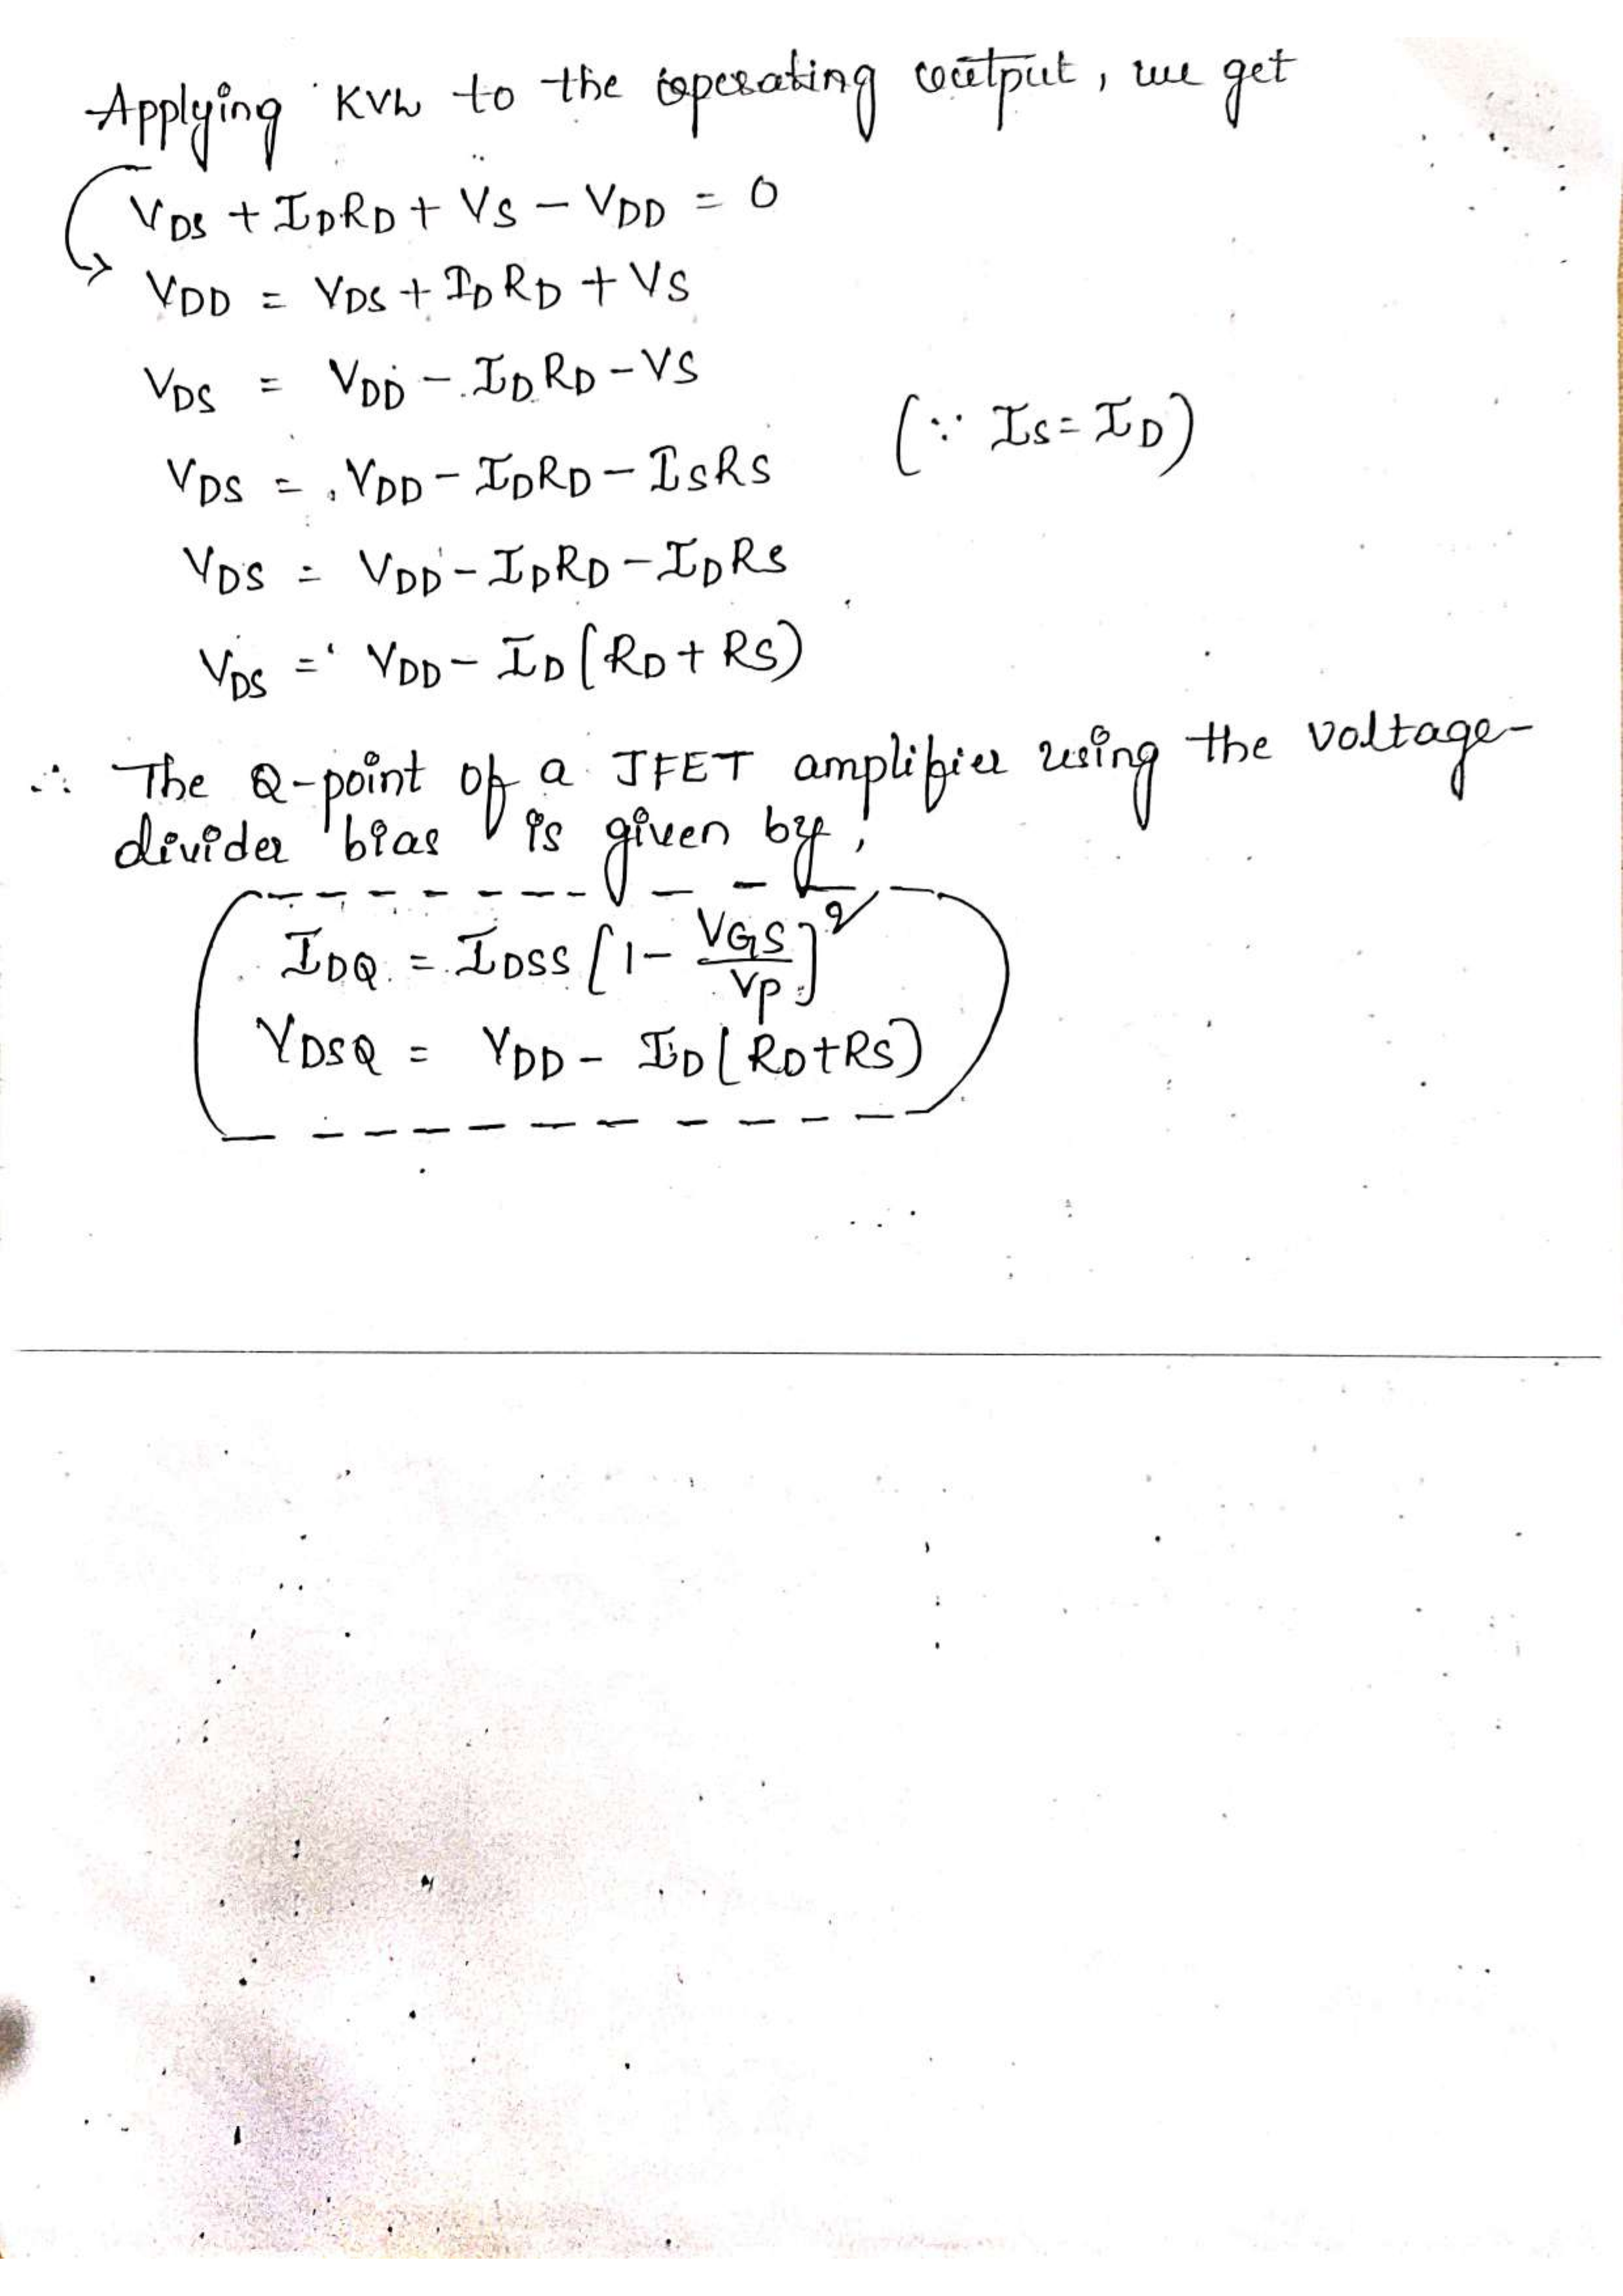 Applying KVL to the operating output, we get
VDS + IDRD + VS - VDD = 0
VDD = VDS + IDRD + VS
VDS = VDD - IDRD - VS
VDS = VDD - IDRD - ISRS (∵ IS = ID)
VDS = VDD - IDRD - IDRS
VDS = VDD - ID(RD + RS)
∴ The Q-point of a JFET amplifier using the voltage-
divider bias is given by,
IDQ = IDSS [1 - VGS/VP]²
VDSQ = VDD - ID[RD+RS)